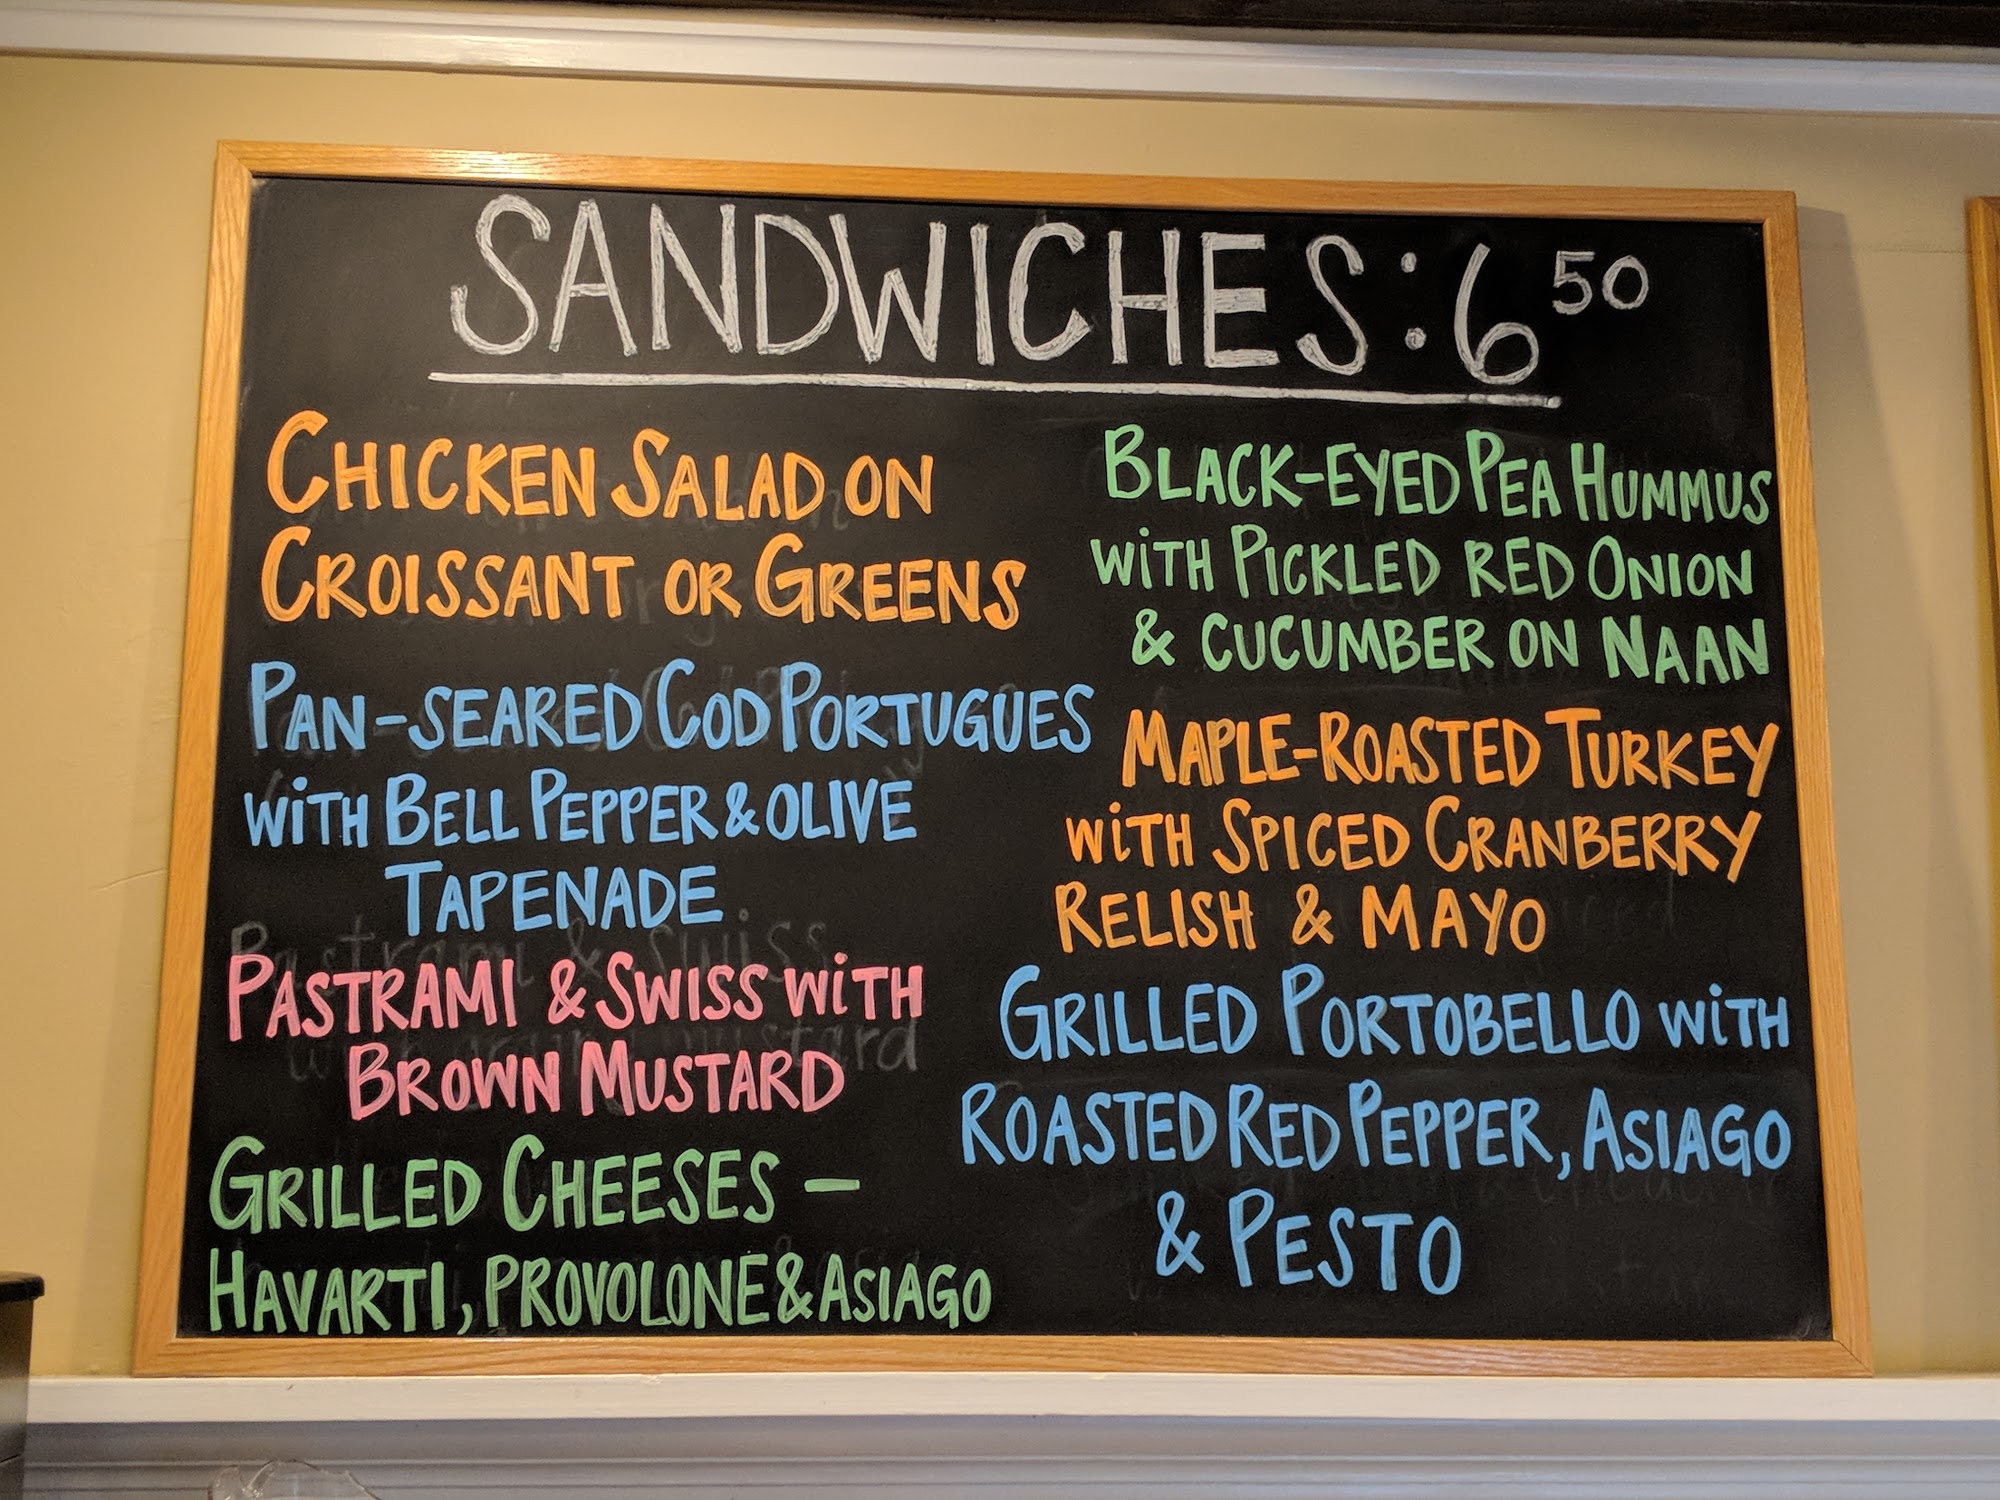 SANDWICHES: 6 50
CHICKEN SALAD ON
CROISSANT OR GREENS
PAN-SEARED COD PORTUGUES
WITH BELL PEPPER & OLIVE
TAPENADE
PASTRAMI & SWISS WITH
BROWN MUSTARD
GRILLED CHEESES —
HAVARTI, PROVOLONE & ASIAGO
BLACK-EYED PEA HUMMUS
WITH PICKLED RED ONION
& CUCUMBER ON NAAN
MAPLE-ROASTED TURKEY
WITH SPICED CRANBERRY
RELISH & MAYO
GRILLED PORTOBELLO WITH
ROASTED RED PEPPER, ASIAGO
& PESTO